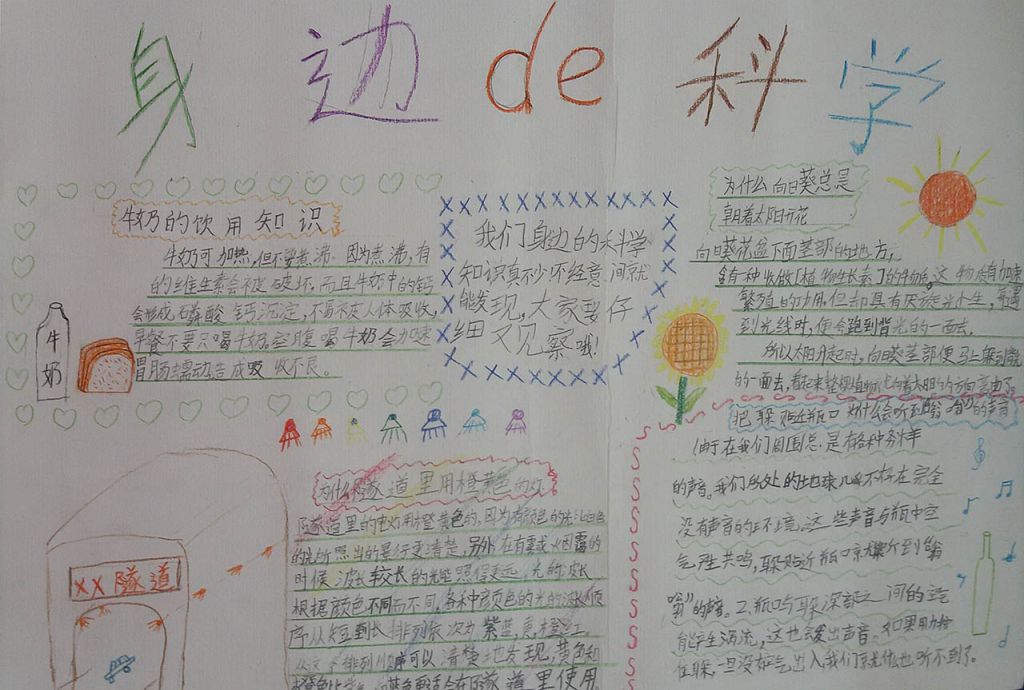 身边de科学
牛奶的饮用知识
牛奶可加热,但不要煮沸。因为煮沸,有
的维生素会不定破坏,而且牛奶中的钙
会形成磷酸钙沉淀,不易不灰人体吸收,
早餐不要只喝牛奶,空腹喝牛奶会加速
胃肠蠕动,造成吸收不良。
牛
奶
我们身边的科学
知识真妙,不经意间就
能发现,大家要仔
细观察哦!
为什么向日葵总是
朝着太阳开花
向日葵花盘下面茎部的地方,
含有一种叫做「植物生长素」的
繁殖的功用,但却具有厌
到光线时,便会跑到背光的一面去。
所以太阳升起时,向日葵茎部便马上
的一面去,看起来整棵植物
把耳朵贴近瓶口为什么会听到"嗡嗡"的声音
由于在我们周围总是有各种各样
的声音。我们所处的地球几乎不存在完全
没有声音的环境。这些声音与瓶中空
气产生共鸣,耳朵贴近瓶口就听到"嗡
嗡"的声音。2.瓶口与耳朵深部之间的空气
能产生涡流,这也会发出声音。如果用力
住耳朵,一旦没有空气出入我们就什么也听不到了。
为什么隧道里用橙黄色的灯
隧道里的灯用橙黄色的,因为有颜色的光比白色
的光所照出的景行更清楚,另外在有雾或烟雾的
时候 波长较长的光能照得更远,光的波长
根据颜色不同而不同,各种颜色的光的波长顺
序从短到长排列依次为紫蓝,黄橙红。
从这个排列顺序可以清楚地发现,黄色和
在隧道里使用
XX隧道